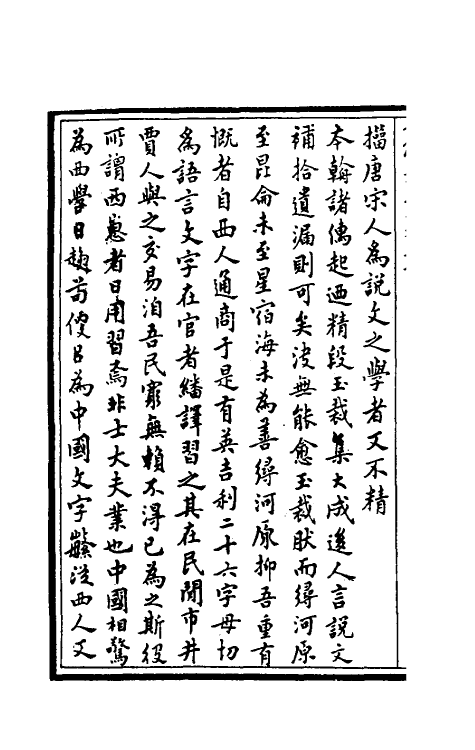 搐唐宋人為說文之學者又不精
本翰諸儁起迺精段玉裁集大成逡人言說文
補拾遺漏則可矣波無能愈玉裁肰而㝷河原
至昆侖未至星宿海未為善㝷河原抑吾重有
慨者自西人通商于是有英吉利二十六字母切
為語言文字在官者繙譯習之其在民閒市井
賈人與之交易洎吾民竆無賴不得已為之斯役
所謂西崽者日用習焉非士大夫業也中國相驚
為西學日趨苟傻㠯為中國文字蘩㳂西人又